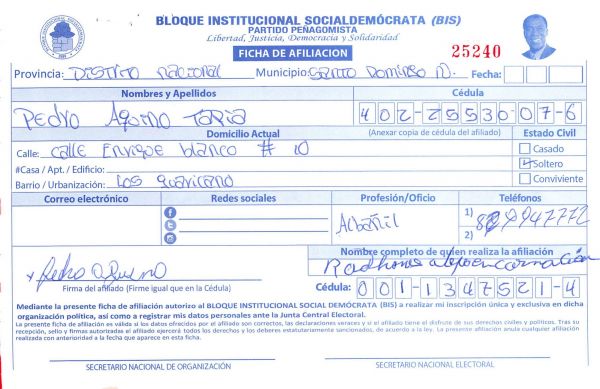 BLOQUE INSTITUCIONAL SOCIALDEMÓCRATA (BIS)
PARTIDO PEÑAGOMISTA
Libertad, Justicia, Democracia y Solidaridad
FICHA DE AFILIACION
25240
Provincia: Distrito Nacional Municipio: Santo Domingo N. Fecha:
Nombres y Apellidos Cédula
Pedro Aquino Tapia 402-25530 07-6
Domicilio Actual (Anexar copia de cédula del afiliado) Estado Civil
Calle: calle Enrique blanco # 10 Casado
#Casa / Apt. / Edificio: Soltero
Barrio / Urbanización: Los guaricano Conviviente
Correo electrónico Redes sociales Profesión/Oficio Teléfonos
Albañil 1)
2)
Nombre completo de quien realiza la afiliación
Pedro Aquino
Firma del afiliado (Firme igual que en la Cédula) Cédula: 001-1347521-4
Mediante la presente ficha de afiliación autorizo al BLOQUE INSTITUCIONAL SOCIAL DEMÓCRATA (BIS) a realizar mi inscripción única y exclusiva en dicha
organización política, así como a registrar mis datos personales ante la Junta Central Electoral.
La presente ficha de afiliación es válida si los datos ofrecidos por el afiliado son correctos, las declaraciones veraces y si el afiliado tiene el disfrute de sus derechos civiles y políticos. Tras su
recepción, sello y firmas autorizadas el afiliado ejercerá todos los derechos y los deberes estatutariamente sancionados, de acuerdo a la ley. La presente afiliación anula cualquier afiliación
realizada con anterioridad a la fecha que aparece en esta ficha.
SECRETARIO NACIONAL DE ORGANIZACIÓN SECRETARIO NACIONAL ELECTORAL